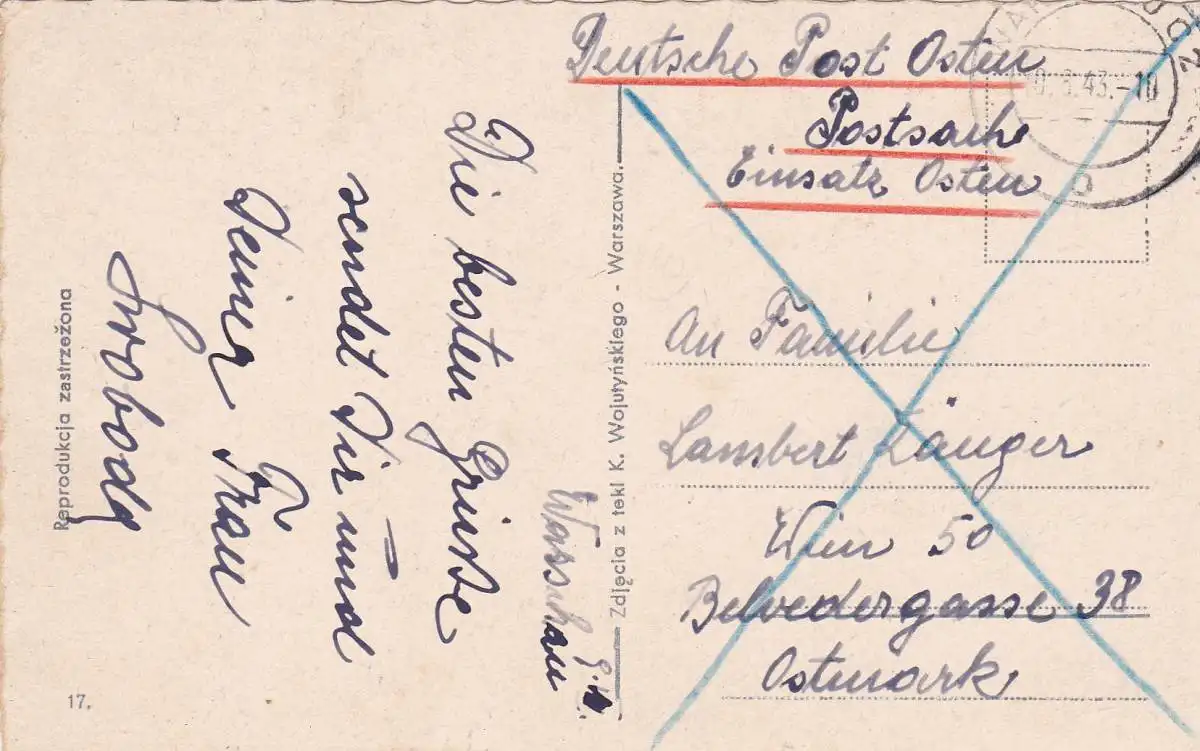 Deutsche Post Osten
Postsache
Einsatz Osten
An Familie
Lambert Zänger
Wien 50
Belvedergasse 38
Ostmark
Die besten Grüsse
sendet Dir und
Deiner Frau
Swoboda
Warschau
Zdjęcia z tekl K. Wojutyńskiego - Warszawa.
Reprodukcja zastrzeżona
17.
43.-10